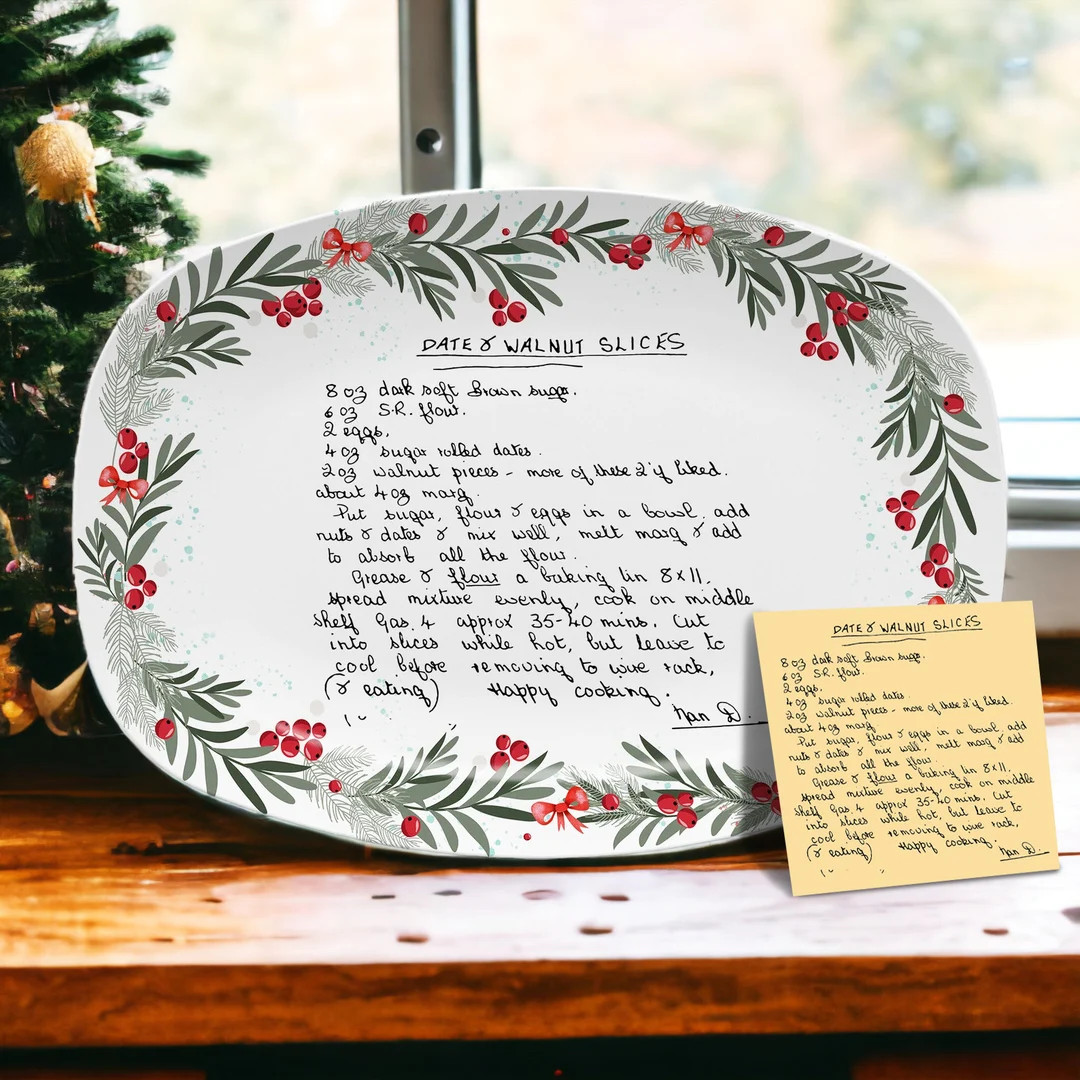 DATE & WALNUT SLICES
8 oz dark soft brown sugar.
6 oz S.R. flour.
2 eggs.
4 oz sugar rolled dates.
2 oz walnut pieces - more of these 2 if liked.
about 4 oz marg.
Put sugar, flour & eggs in a bowl. add
nuts & dates & mix well, melt marg & add
to absorb all the flour.
Grease & flour a baking tin 8x11.
spread mixture evenly, cook on middle
shelf Gas. 4 approx 35-40 mins. Cut
into slices while hot, but leave to
cool before removing to wire rack,
(& eating) Happy cooking.
Nan D.
DATE & WALNUT SLICES
8 oz dark soft brown sugar.
6 oz S.R. flour.
2 eggs.
4 oz sugar rolled dates.
2 oz walnut pieces - more of these 2 if liked.
about 4 oz marg.
Put sugar, flour & eggs in a bowl. add
nuts & dates & mix well, melt marg & add
to absorb all the flour.
Grease & flour a baking tin 8x11.
spread mixture evenly, cook on middle
shelf Gas. 4 approx 35-40 mins. Cut
into slices while hot, but leave to
cool before removing to wire rack,
(& eating) Happy cooking.
Nan D.